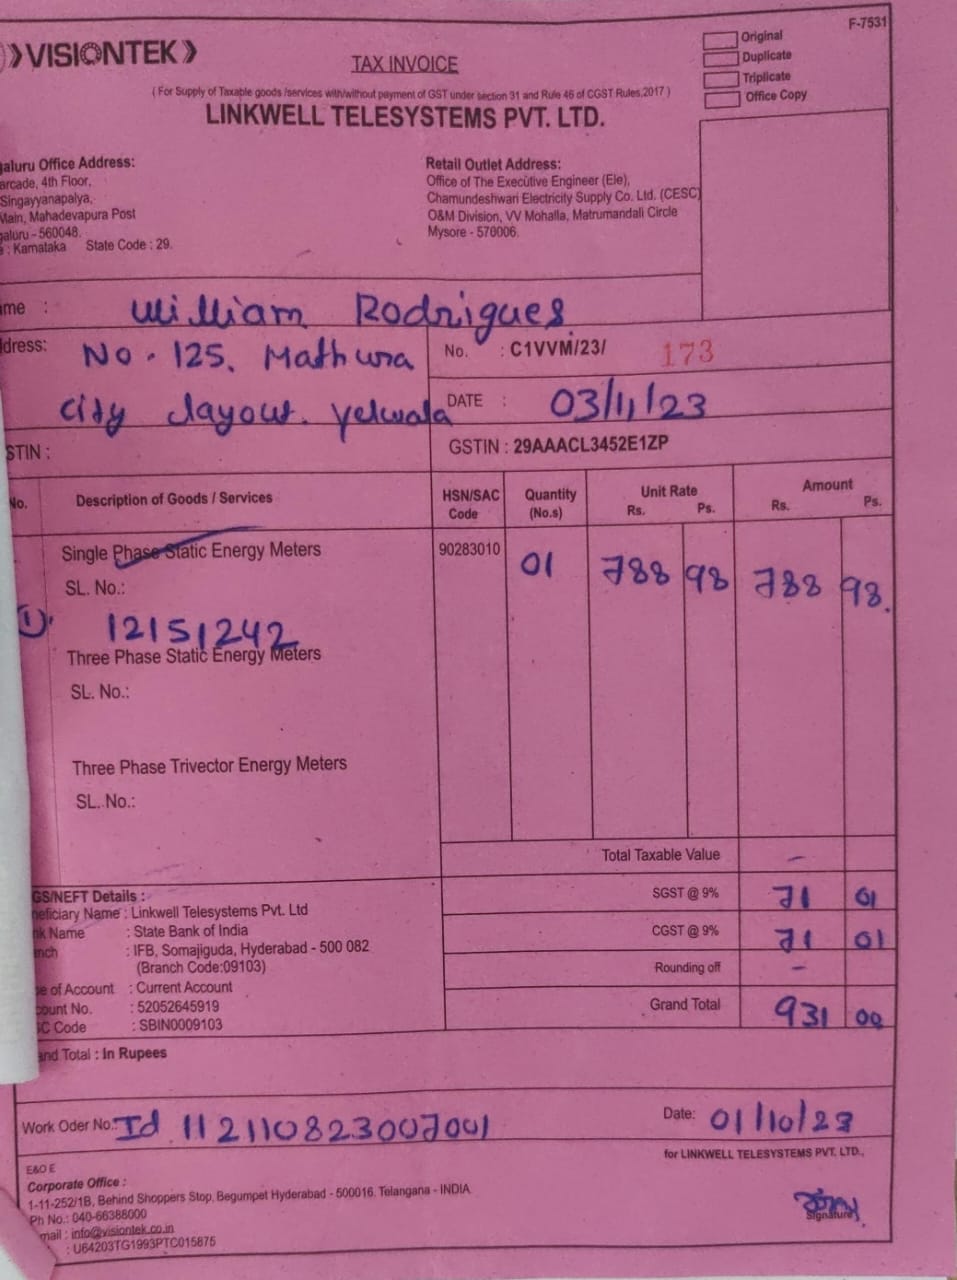 F-7531
VISIONTEK
Original
Duplicate
Triplicate
Office Copy
TAX INVOICE
( For Supply of Taxable goods /services with/without payment of GST under section 31 and Rule 46 of CGST Rules,2017 )
LINKWELL TELESYSTEMS PVT. LTD.
galuru Office Address:
arcade, 4th Floor,
Singayyanapalya,
Main, Mahadevapura Post
galuru - 560048.
: Karnataka State Code : 29.
Retail Outlet Address:
Office of The Executive Engineer (Ele),
Chamundeshwari Electricity Supply Co. Ltd. (CESC)
O&M Division, VV Mohalla, Matrumandali Circle
Mysore - 570006.
me : William Rodrigues
dress: No. 125, Mathura
City Layout. Yelwala
No. : C1VVM/23/ 173
DATE : 03/11/23
STIN :
GSTIN : 29AAACL3452E1ZP
No. Description of Goods / Services HSN/SAC Code Quantity (No.s) Unit Rate Rs. Ps. Amount Rs. Ps.
Single Phase Static Energy Meters 90283010 01 788 98 788 98.
SL. No.:
1) 12151242
Three Phase Static Energy Meters
SL. No.:
Three Phase Trivector Energy Meters
SL. No.:
Total Taxable Value -
SGST @ 9% 71 01
CGST @ 9% 71 01
Rounding off -
Grand Total 931 00
GS/NEFT Details :
neficiary Name : Linkwell Telesystems Pvt. Ltd
nk Name : State Bank of India
nch : IFB, Somajiguda, Hyderabad - 500 082
(Branch Code:09103)
pe of Account : Current Account
count No. : 52052645919
SC Code : SBIN0009103
and Total : In Rupees
Work Oder No.: Id 112110823007001
Date: 01/10/23
for LINKWELL TELESYSTEMS PVT. LTD.,
E&O E
Corporate Office :
1-11-252/1B, Behind Shoppers Stop, Begumpet Hyderabad - 500016. Telangana - INDIA
Ph No.: 040-66388000
mail : info@visiontek.co.in
: U64203TG1993PTC015875
Signature